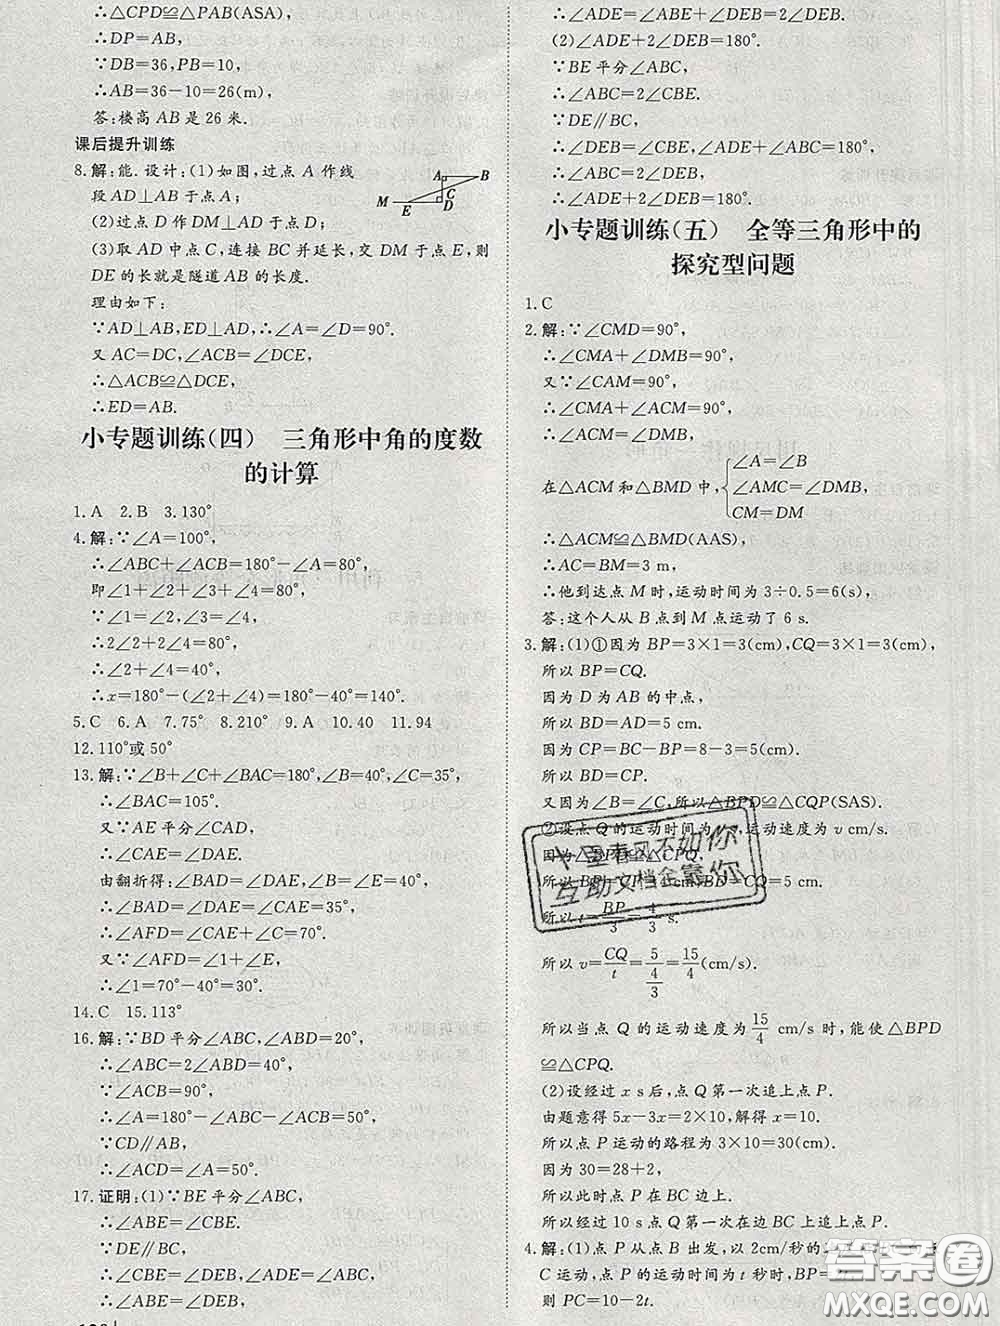 ∴△CPD≌△PAB(ASA),
∴DP=AB,
∵DB=36,PB=10,
∴AB=36-10=26(m),
答:楼高AB是26米.
课后提升训练
8.解:能.设计:(1)如图,过点A作线
段AD⊥AB于点A;
(2)过点D作DM⊥AD于点D;
(3)取AD中点C,连接BC并延长,交DM于点E,则
DE的长就是隧道AB的长度.
A B
C
M E D
理由如下:
∵AD⊥AB,ED⊥AD,∴∠A=∠D=90°.
又AC=DC,∠ACB=∠DCE,
∴△ACB≌△DCE,
∴ED=AB.
小专题训练(四) 三角形中角的度数
的计算
1.A 2.B 3.130°
4.解:∵∠A=100°,
∴∠ABC+∠ACB=180°-∠A=80°,
即∠1+∠2+∠3+∠4=80°,
∵∠1=∠2,∠3=∠4,
∴2∠2+2∠4=80°,
∴∠2+∠4=40°,
∴x=180°-(∠2+∠4)=180°-40°=140°.
5.C 6.A 7.75° 8.210° 9.A 10.40 11.94
12.110°或50°
13.解:∵∠B+∠C+∠BAC=180°,∠B=40°,∠C=35°,
∴∠BAC=105°.
又∵AE平分∠CAD,
∴∠CAE=∠DAE.
由翻折得:∠BAD=∠DAE,∠B=∠E=40°,
∴∠BAD=∠DAE=∠CAE=35°,
∴∠AFD=∠CAE+∠C=70°.
又∵∠AFD=∠1+∠E,
∴∠1=70°-40°=30°.
14.C 15.113°
16.解:∵BD平分∠ABC,∠ABD=20°,
∴∠ABC=2∠ABD=40°,
∵∠ACB=90°,
∴∠A=180°-∠ABC-∠ACB=50°.
∵CD∥AB,
∴∠ACD=∠A=50°.
17.证明:(1)∵BE平分∠ABC,
∴∠ABE=∠CBE.
∵DE∥BC,
∴∠CBE=∠DEB,∴∠ABE=∠DEB,
∴∠ADE=∠ABE+∠DEB=2∠DEB.
(2)∠ADE+2∠DEB=180°.
∵BE平分∠ABC,
∴∠ABC=2∠CBE.
∵DE∥BC,
∴∠DEB=∠CBE,∠ADE+∠ABC=180°,
∴∠ABC=2∠DEB,
∴∠ADE+2∠DEB=180°.
小专题训练(五) 全等三角形中的
探究型问题
1.C
2.解:∵∠CMD=90°,
∴∠CMA+∠DMB=90°,
又∵∠CAM=90°,
∴∠CMA+∠ACM=90°,
∴∠ACM=∠DMB,
∠A=∠B
在△ACM和△BMD中,∠AMC=∠DMB,
CM=DM
∴△ACM≌△BMD(AAS),
∴AC=BM=3 m,
∴他到达点M时,运动时间为3÷0.5=6(s),
答:这个人从B点到M点运动了6 s.
3.解:(1)①因为BP=3×1=3(cm),CQ=3×1=3(cm),
所以BP=CQ.
因为D为AB的中点,
所以BD=AD=5 cm.
因为CP=BC-BP=8-3=5(cm),
所以BD=CP.
又因为∠B=∠C,所以△BPD≌△CQP(SAS).
②设点Q的运动时间为 ,运动速度为v cm/s.
因为△BPD≌△CPQ,
所以 cm,BD=CQ=5 cm.
所以t=BP/3=4/3 s.
所以v=CQ/t=5/(4/3)=15/4(cm/s).
所以当点Q的运动速度为15/4 cm/s时,能使△BPD
≌△CPQ.
(2)设经过x s后,点Q第一次追上点P.
由题意得5x-3x=2×10,解得x=10.
所以点P运动的路程为3×10=30(cm).
因为30=28+2,
所以此时点P在BC边上.
所以经过10 s点Q第一次在边BC上追上点P.
4.解:(1)点P从点B出发,以2cm/秒的
C运动,点P的运动时间为t秒时,BP=
则PC=10-2t.
十里春风不如你
互助文档全靠你
答案卷
MXQE.COM